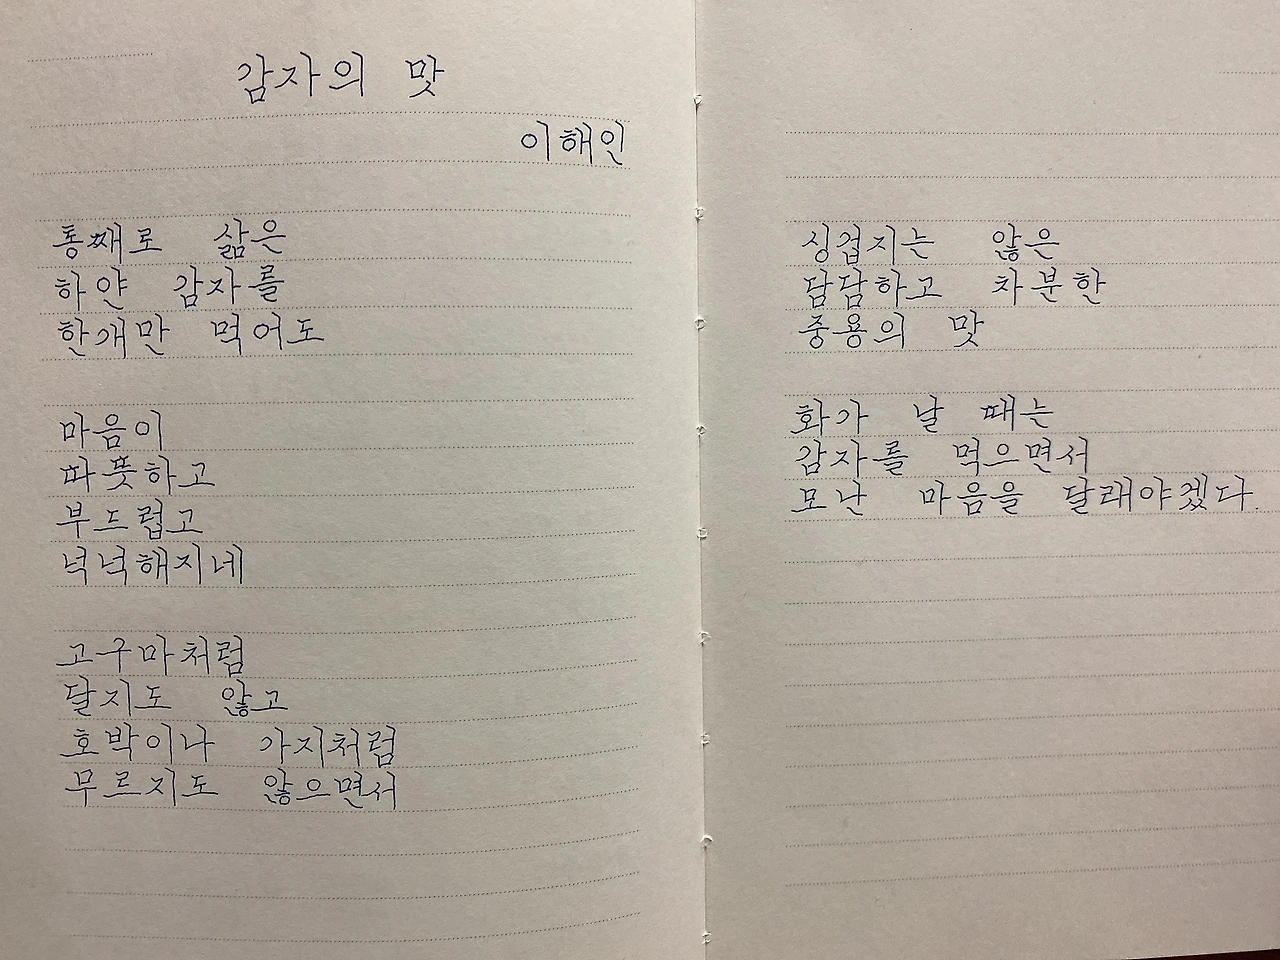 감자의 맛
이해인
통째로 삶은
하얀 감자를
한개만 먹어도
마음이
따뜻하고
부드럽고
넉넉해지네
고구마처럼
달지도 않고
호박이나 가지처럼
무르지도 않으면서
싱겁지는 않은
담담하고 차분한
중용의 맛
화가 날 때는
감자를 먹으면서
모난 마음을 달래야겠다.